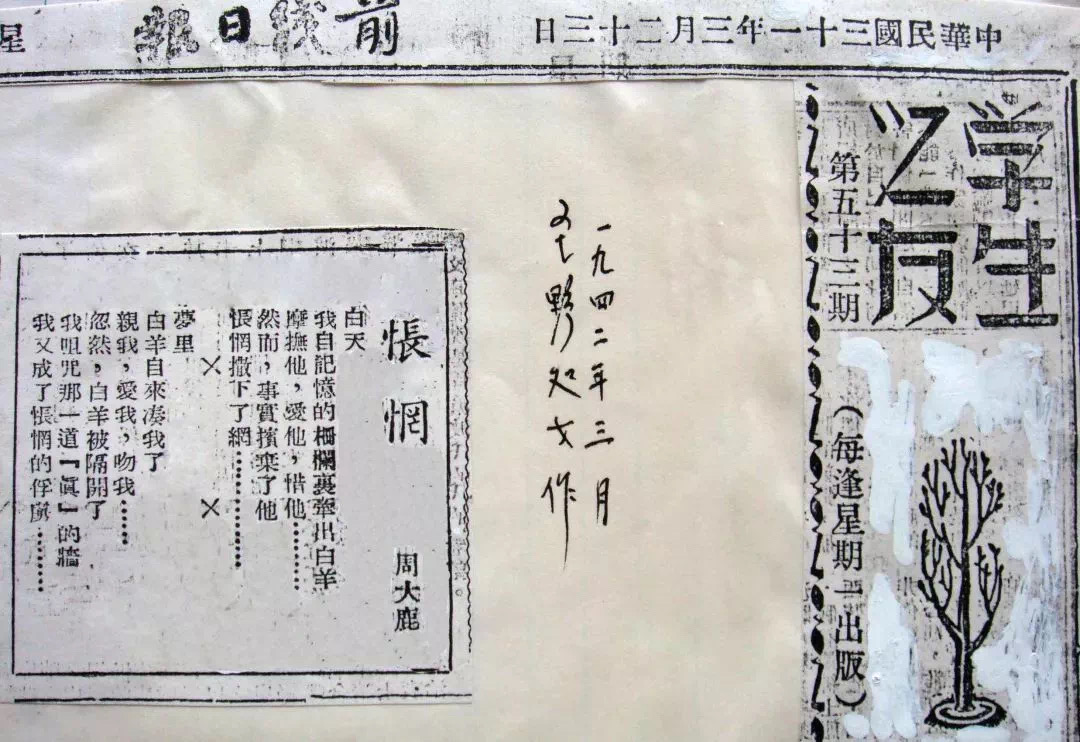 中華民國三十一年三月二十三日
前綫日報
星
学生
之友
第五十三期
（每逢星期一出版）
一九四二年三月
野处女作
悵惘
周大鹿
白天
我自記憶的柵欄裏牽出白羊
摩撫他，愛他，惜他…………
然而，事實擯棄了他
悵惘撒下了網…………
× ×
夢里
白羊自來凑我了
親我，愛我，吻我……
忽然，白羊被隔開了
我咀咒那一道『眞』的牆
我又成了悵惘的俘虜………